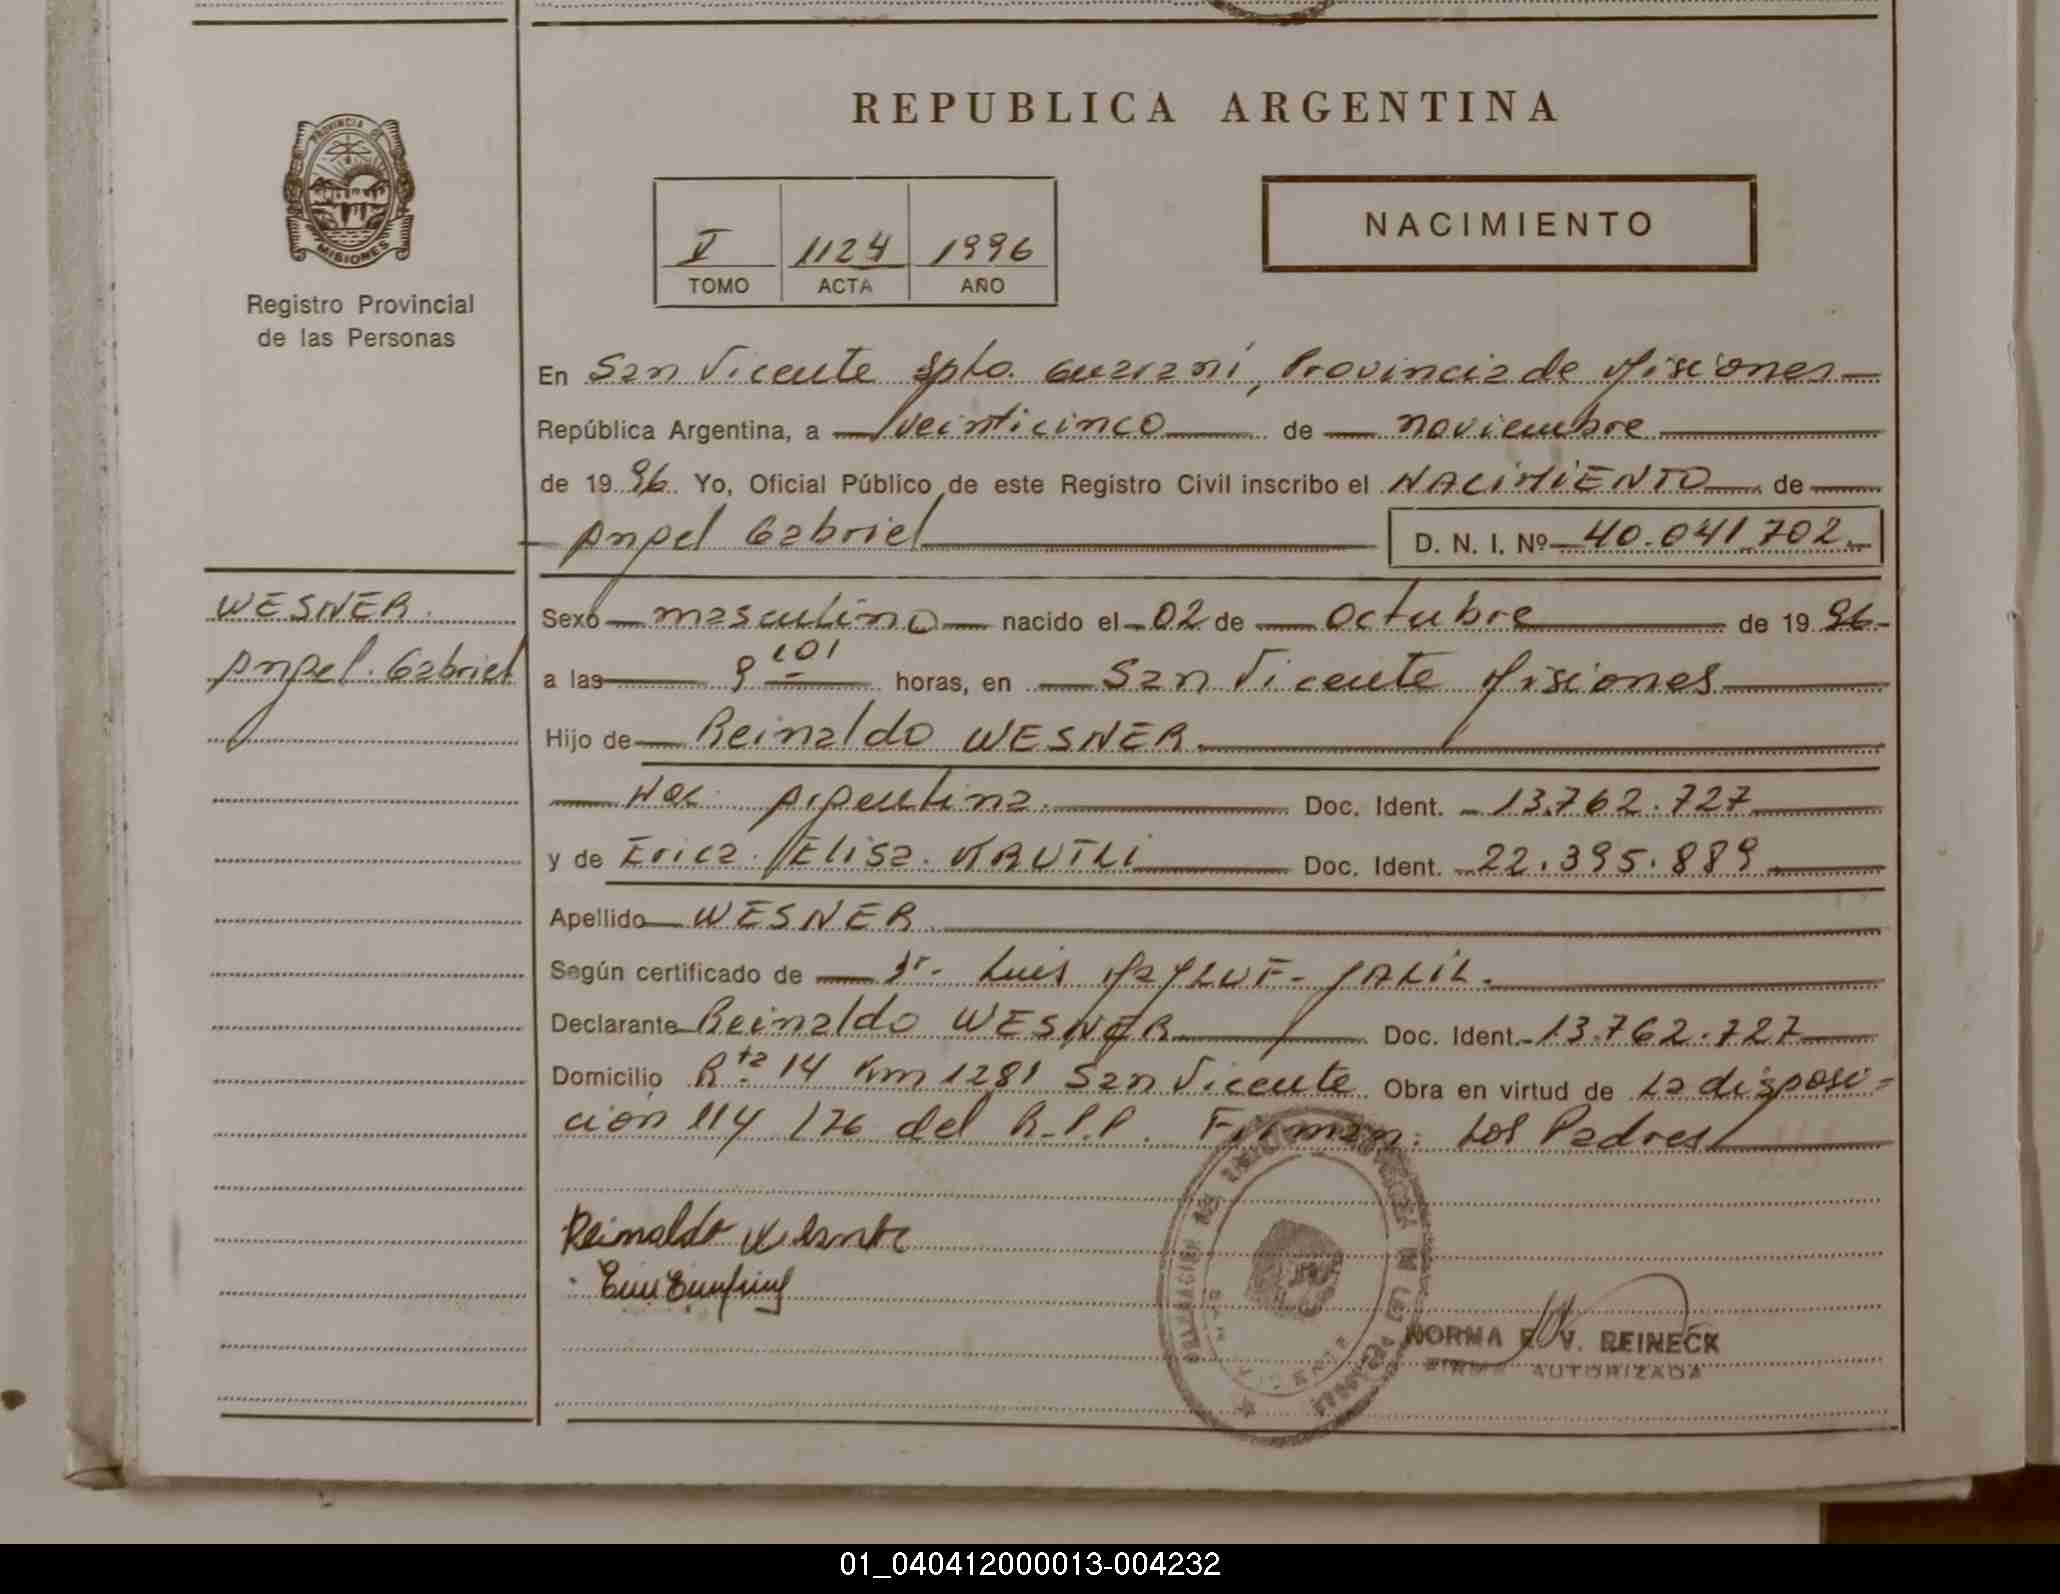 REPUBLICA ARGENTINA
PROVINCIA DE
MISIONES
Registro Provincial
de las Personas
V 1124 1996
TOMO ACTA AÑO
NACIMIENTO
En San Vicente Dpto. Guaraní, Provincia de Misiones
República Argentina, a veinticinco de noviembre
de 1996. Yo, Oficial Público de este Registro Civil inscribo el NACIMIENTO de
Angel Gabriel D. N. I. Nº 40.041.702.
WESNER.
Angel. Gabriel
Sexo masculino nacido el 02 de Octubre de 1996
a las 9 horas, en San Vicente Misiones
Hijo de Reinaldo WESNER.
Nac. Argentina. Doc. Ident. 13.762.727
y de Erica. Elisa. KRUTLI Doc. Ident. 22.395.889
Apellido WESNER.
Según certificado de Dr. Luis JALIL.
Declarante Reinaldo WESNER Doc. Ident. 13.762.727
Domicilio Rta 14 Km 1281 San Vicente. Obra en virtud de La disposi=
ción 114/76 del R.P.P. Firman: Los Padres
Reinaldo
NORMA E. V. REINECK
FIRMA AUTORIZADA
01_040412000013-004232